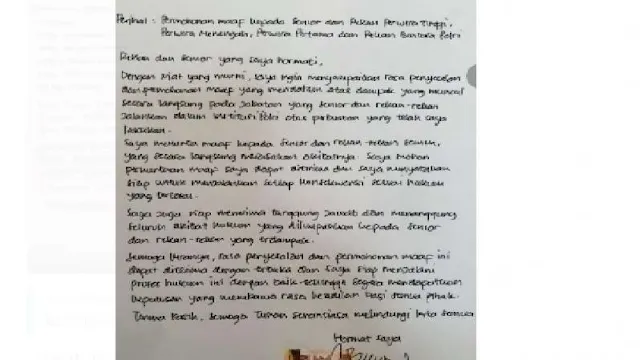 Perihal : Permohonan maaf kepada Senior dan Rekan Perwira Tinggi,
Perwira Menengah, Perwira Pertama dan Rekan Bintara Polri
Rekan dan Senior yang saya hormati,
Dengan niat yang murni, saya ingin menyampaikan rasa penyesalan
dan permohonan maaf yang mendalam atas dampak yang muncul
secara langsung pada jabatan yang senior dan rekan-rekan
jalankan dalam institusi Polri atas perbuatan yang telah saya
lakukan.
Saya meminta maaf kepada senior dan rekan-rekan semua,
yang secara langsung merasakan akibatnya. Saya mohon
permintaan maaf saya dapat diterima dan saya menyatakan
siap untuk menjalankan setiap konsekuensi sesuai hukum
yang berlaku.
Saya juga siap menerima tanggung jawab dan menanggung
seluruh akibat hukum yang dilimpahkan kepada senior
dan rekan-rekan yang terdampak.
Semoga kiranya, rasa penyesalan dan permohonan maaf ini
dapat diterima dengan terbuka dan saya siap menjalani
proses hukum ini dengan baik sehingga segera mendapatkan
keputusan yang membawa rasa keadilan bagi semua pihak.
Terima kasih, semoga Tuhan senantiasa melindungi kita semua
Hormat Saya